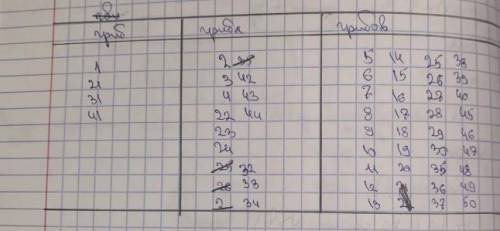 гриб гриба грибов
1 2 5 14 25 38
21 3 42 6 15 26 39
31 4 43 7 16 27 40
41 22 44 8 17 28 45
23 9 18 29 46
24 10 19 30 47
32 11 20 35 48
33 12 36 49
2 34 13 37 50